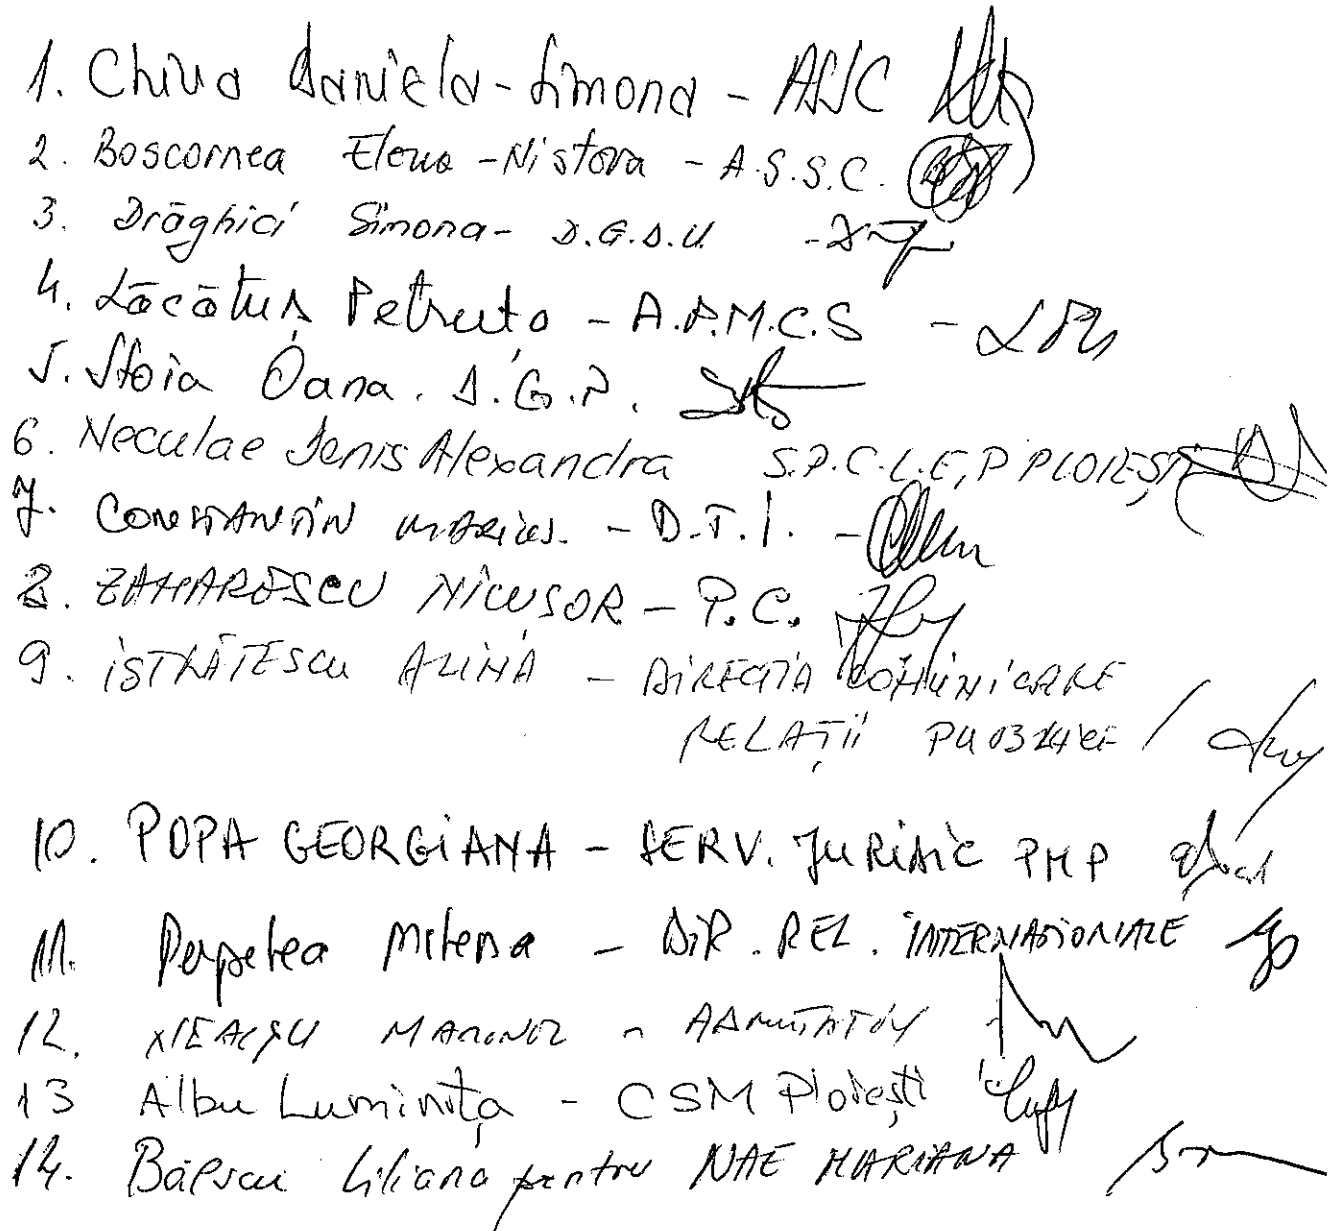 1. Chiva Daniela-Simona - ASSC
2. Boscornea Elena-Nistora - A.S.S.C.
3. Drăghici Simona - D.G.D.U.
4. Lăcătuș Petruța - A.P.M.C.S
5. Stoia Oana. D.G.P.
6. Neculae Denis Alexandra S.P.C.L.E.P PLOIEȘTI
7. CONSTANTIN MARIUS. - D.T.I.
8. ZAHARESCU NICUȘOR - P.C.
9. ISTRĂTESCU ALINA - DIRECȚIA COMUNICARE
RELAȚII PUBLICE /
10. POPA GEORGIANA - SERV. JURIDIC PMP
11. Milena - DIR. REL. INTERNAȚIONALE
12.
13 Albu Luminița - CSM Ploiești
14. Liliana pentru NAE MARIANA